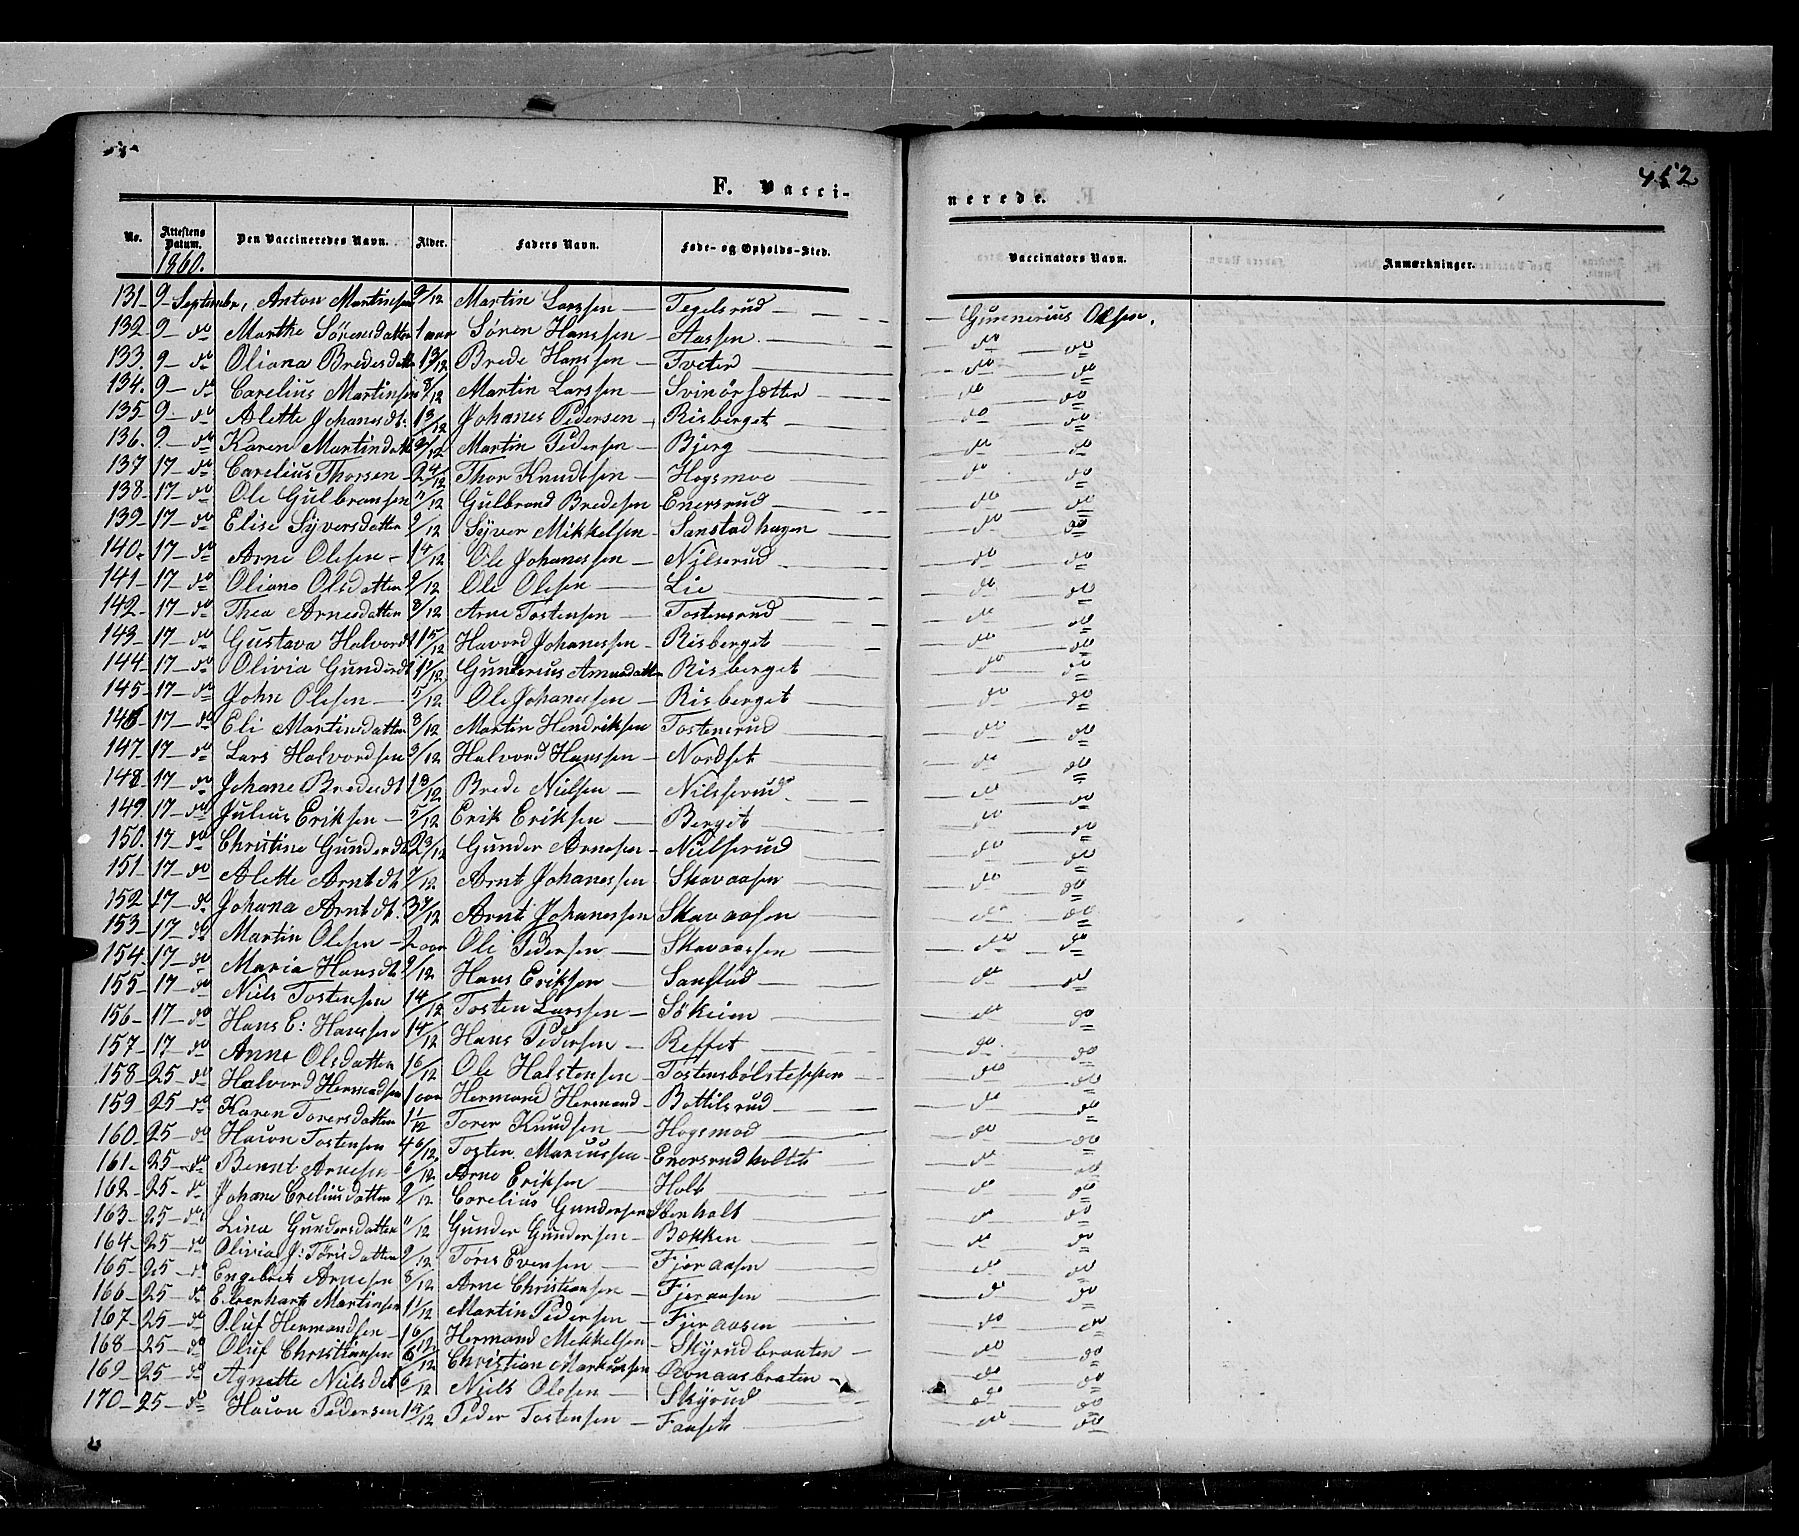 452
F. Vacci-
nerede.
No. Attestens Datum. Den Vaccineredes Navn. Alder. Faders Navn. Føde- og Opholds-Sted. Vaccinators Navn. Anmærkninger.
1860.
131 - 9 - September, Anton Martinsen 9/12 Martin Larssen - Tegelsrud - Gunnerius Olsen.
132 - 9 - do Marthe Sörensdatter 1 aar Sören Hanssen - Aassen. do do
133. 9 - do Oliana Bredesdatter 13/12 Brede Hanssen - Tveter do do
134. 9 - do Carelius Martinsen 8/12 Martin Larssen - Svinörsætter do do
135 - 9 - do Alette Johanesdt: 13/12 Johanes Pedersen - Risberget do do
136. 9 - do Karen Martindatt 9/12 Martin Pedersen - Bjerg do do
137 17 - do Carelius Thorsen - 2 4/12 Thor Knudtsen - Hogsmoe do do
138 - 17 - do Ole Gulbransen 11/12 Gulbrand Bredesen Enersrud do do
139 - 17 - do Elise Syversdatter 9/12 Syver Mikkelsen - Sanstadhagen do do
140 - 17 - do Arne Olesen - 14/12 Ole Johanessen - Nilserud do do
141 - 17 - do Oliana Olsdatter 9/12 Ole Olesen - Lie do do
142 - 17 - do Thea Arnesdatter 8/12 Arne Tostensen - Tostensrud do do
143 - 17 - do Gustava Halvordt 15/12 Havord Johanessen - Risberget do do
144 - 17 - do Olivia Gunderdt 11/12 Gunderius Amundatter Risberget do do
145 - 17 - do Johne Olesen - 5/12 Ole Johanessen - Risberget do do
146 - 17 - do Eli Martinsdatter 3/12 Martin Hendriksen Tostenrud do do
147 - 17 - do Lars Halvordsen 9/12 Halvord Hanssen - Nordset do do
148 - 17 - do Johane Bredesdt 13/12 Brede Nielsen - Nilsserud do do
149. 17 - do Julius Eriksen - 5/12 Erik Eriksen - Berget do do
150. 17 - do Christine Gunderdt 2 3/12 Gunder Arnesen - Nielserud do do
151 - 17 - do Alette Arntdt. 7/12 Arnt Johanessen - Skavaasen do do
152 - 17 - do Johana Arntdt. 3 7/12 Arnt Johanessen Skavaasen do do
153 - 17 - do Martin Olesen - 2 aar Ole Pedersen - Skavaassen do do
154 - 17 - do Maria Hansdt 9/12 Hans Eriksen - Sanstad - do do
155 - 17 - do Niels Tostensen 14/12 Tosten Larssen - Sökeim do do
156 - 17 - do Hans E: Hanssen 14/12 Hans Pedersen - Reffet do do
157 - 17 - do Anne Olsdatter 16/12 Ole Halstensen - do do
158 - 25 - do Halvord Hermadsen 1 aar Hermand Hermand - Bottilsrud do do
159 25 - do Karen Torersdatter 11/12 Torer Knudsen - Hogsmod do do
160 - 25 - do Hacon Tostensen 4 6/12 Tosten Marcussen - Enersrudholtet do do
161 - 25 - do Bennt Arnesen - 6/12 Arne Eriksen Holt do do
162 - 25 - do Johane Creliusdatter 9/12 Corelius Gundersen Ibenholt do do
163 - 25 - do Lina Gundersdatter 11/12 Gunder Gundersen - Bækken do do
164 - 25 - do Olivia J: Törisdatter 9/12 Töris Evensen - Fjeraasen do do
165 - 25 - do Engebret Arnesen 8/12 Arne Christiansen - Fjeraasen do do
166 - 25 - do Martinsen 11/12 Martin Pedersen - Fjeraasen do do
167 - 25 - do Oluf Hermandsen - 16/12 Hermand Mikkelsen - Skyrudbraaten do do
168 - 25 - do Oluf Christiansen 6/12 Christian Markussen do do
169 - 25 - do Agnette Nielsdt 6/12 Niels Olesen - Skyrud do do
170 - 25 - do Hacon Pedersen 14/12 Peder Tostensen - Fauset do do